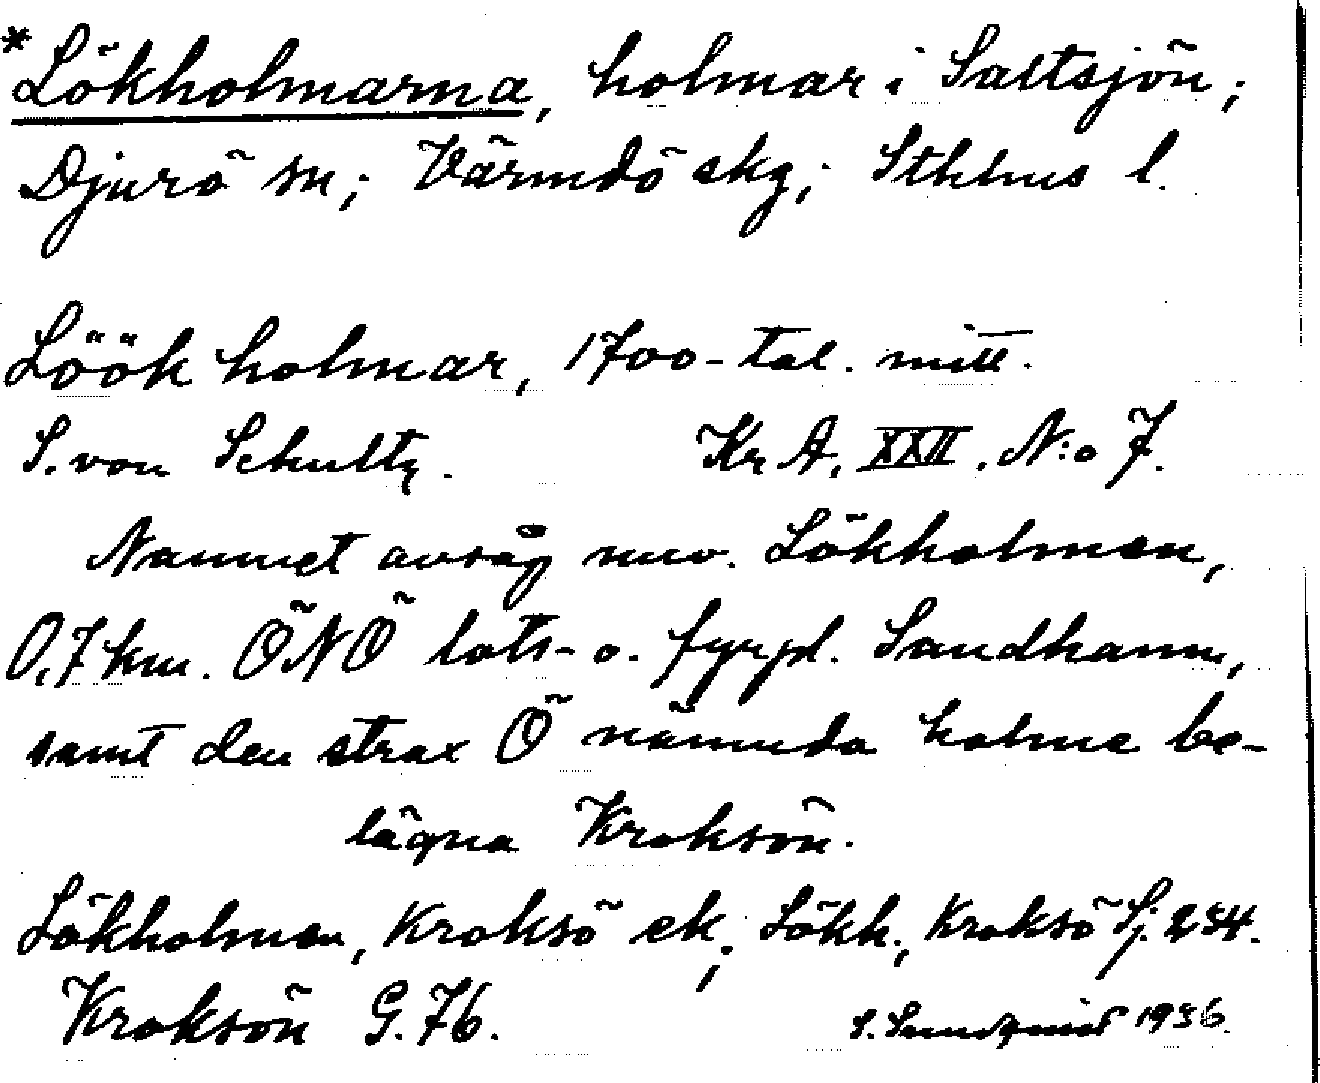 *Lökholmarna, holmar i Saltsjön;
Djurö sn; Värmdö skg; Sthlms l.
Löök holmar, 1700-tal. mitt.
S. von Schultz. Kr A, XXII, N:o 7.
Namnet avsåg nuv. Lökholmen,
0,7 km. ÖNÖ lots- o. fyrpl. Sandhamn,
samt den strax Ö nämnda holme be-
lägna Kroksön.
Lökholmen, Kroksö ek; Lökh., Kroksö Sj. 254.
Kroksön G. 76. S. Sundqvist 1936.